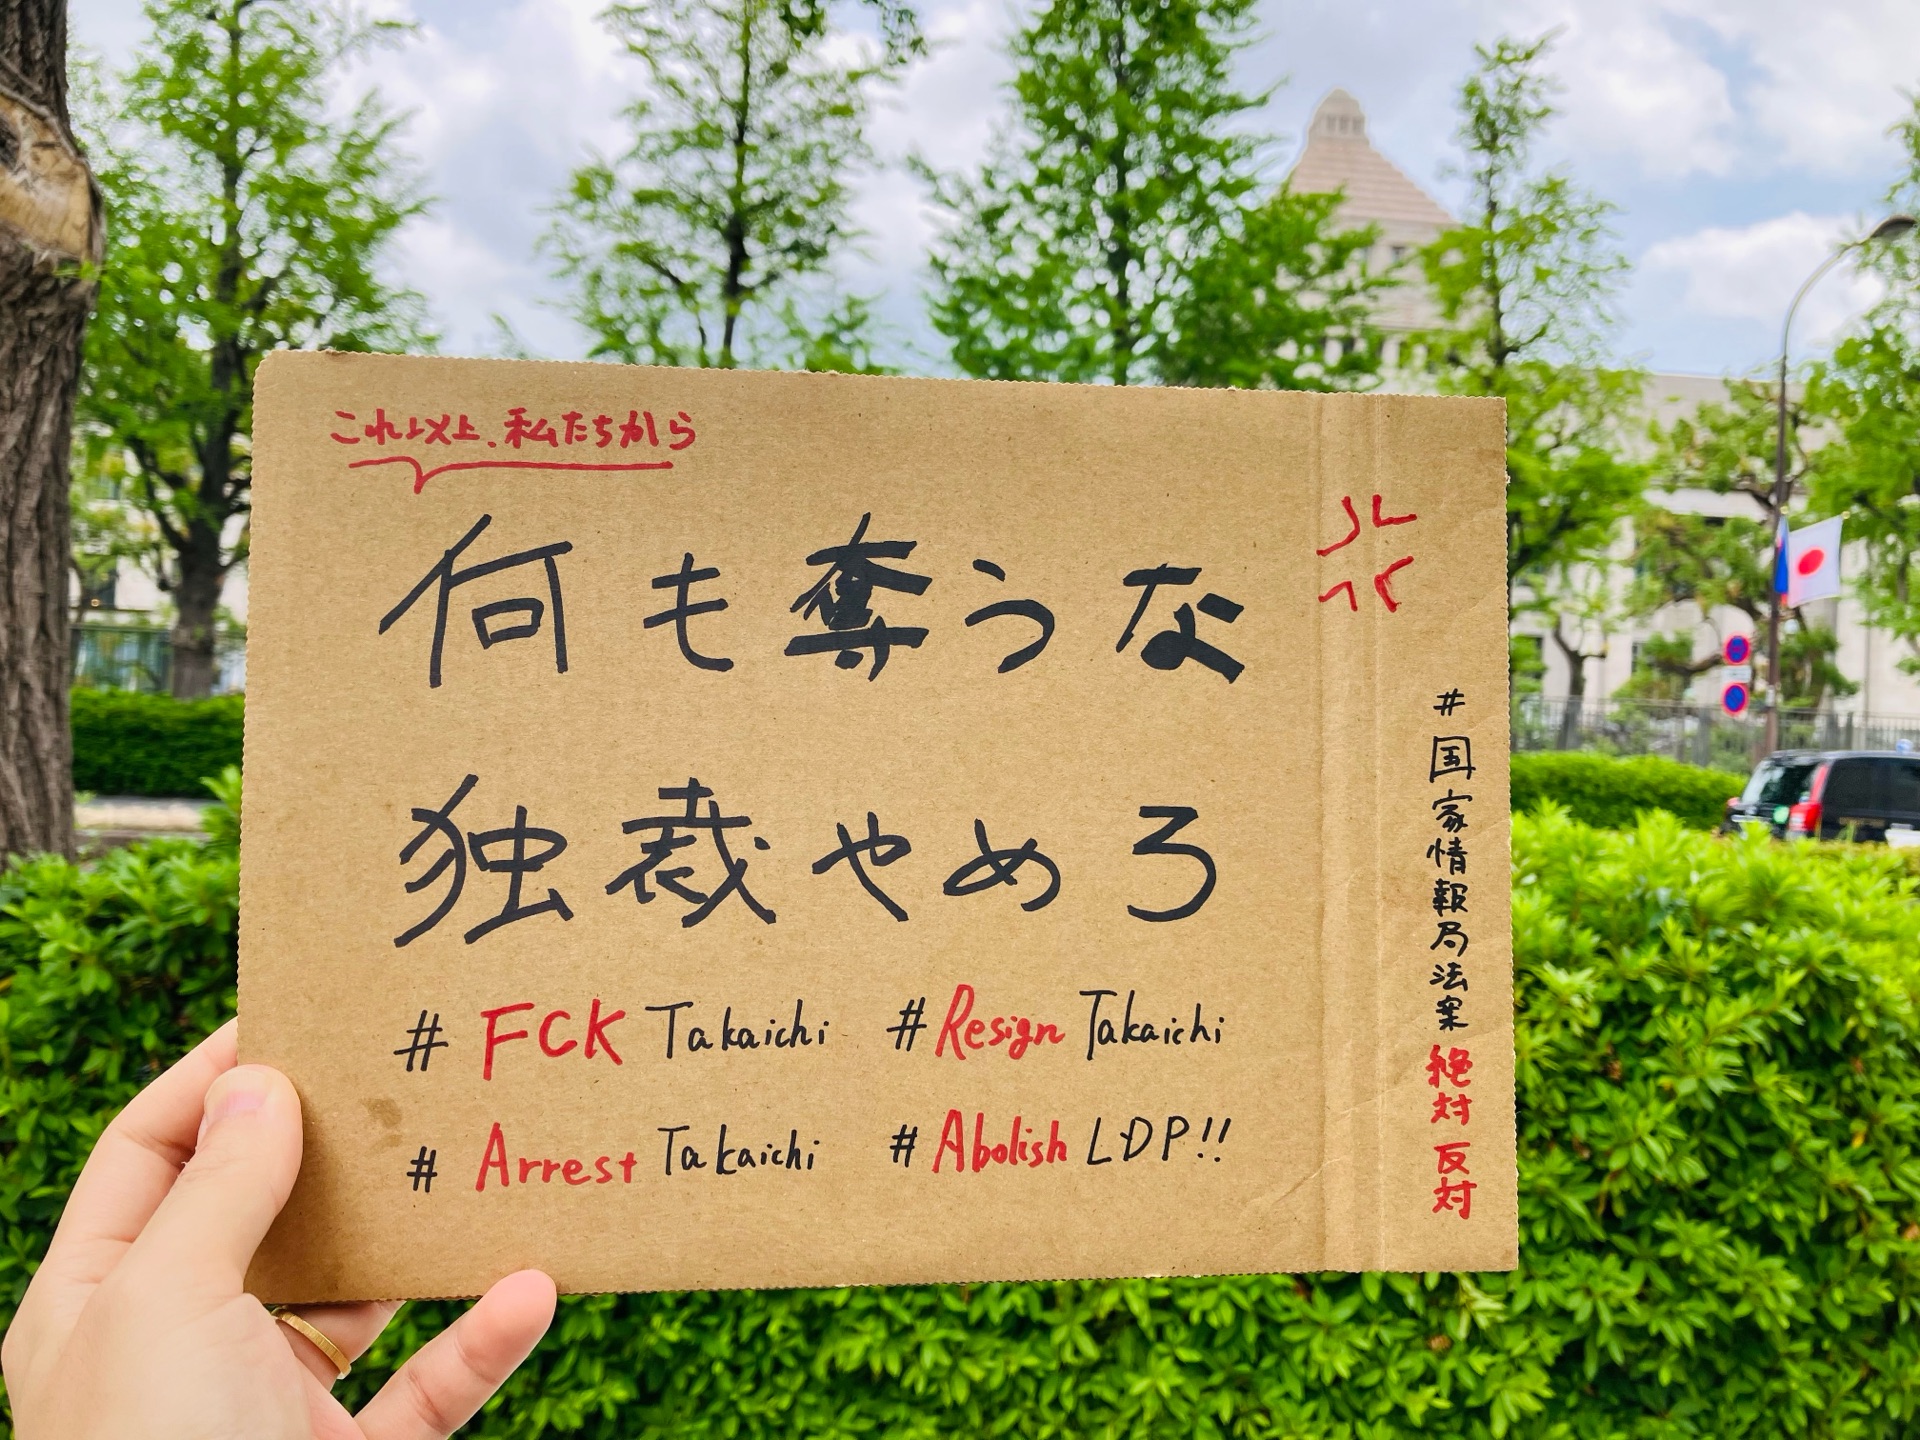 これ以上、私たちから
何も奪うな
独裁やめろ
# FCK Takaichi # Resign Takaichi
# Arrest Takaichi # Abolish LDP!!
#国家情報局法案 絶対反対